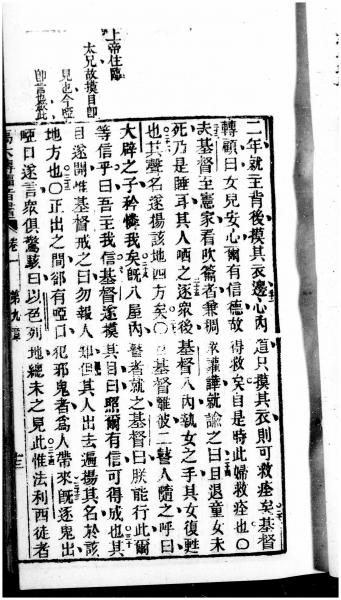 上帝住臨
太兄故摸目即
見也今啞
即言
二年就主背後摸其衣邊心內道只摸其衣則可救痊矣基督
轉顧曰女兒安心爾有信德故得救矣自是時此婦救痊也〇
夫基督至憲家看吹籥者兼稠衆嚾譁就諭之曰且退童女未
死乃是睡耳其人哂之逐衆後基督入內執女之手其女復甦
也其聲名遂揚該地四方矣〇基督離彼二瞽人隨之呼曰
大辟之子矜憐我矣旣入屋內瞽者就之基督曰朕能行此爾
等信乎曰吾主我信基督遂摸其目曰照爾有信可得成也其
目遂開惟基督戒之曰勿報人知但其人出去遍揚其名於該
地方也〇正出之間郤有啞口犯邪鬼者爲人帶來旣逐鬼出
啞口遂言衆俱驚駭曰以色列地總未之見此惟法利西徒者
馬太傳福音書 卷一 第九章 十三